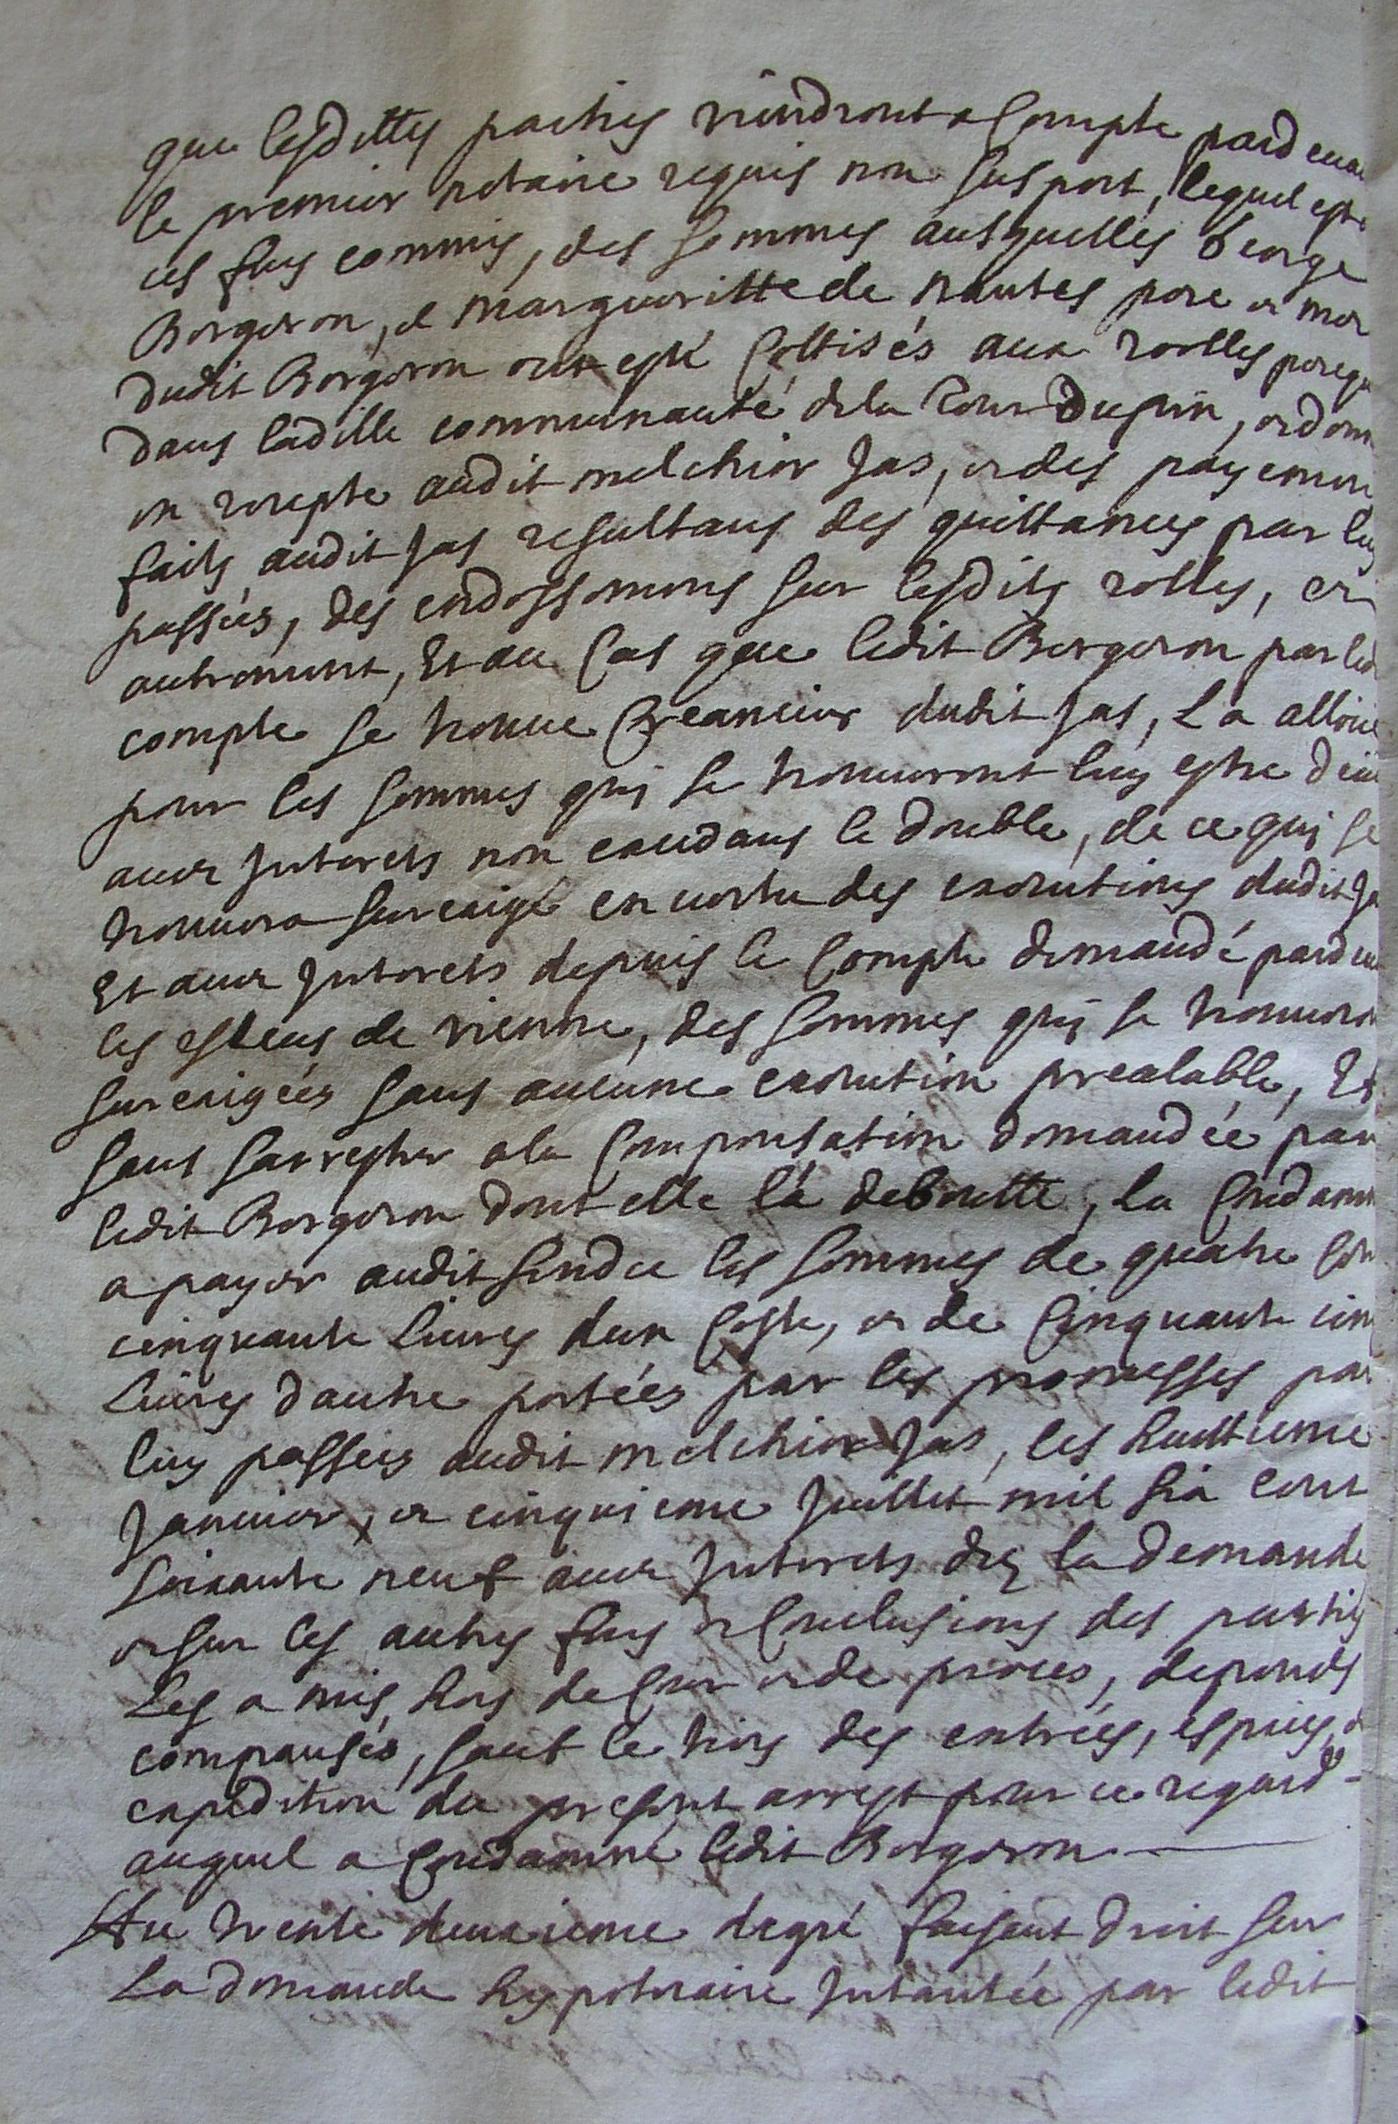 que lesdittes parties viendront a Compte pardeua
le premier notaire requis non suspect, lequel est a
ces fins commis, des sommes ausquelles George
Bergeron, et Margueritte de nantes pere et mer
dudit Bergeron ont esté Cottisés aux roolles perequ
dans laditte communauté de la Tour Dupin, et donn
en recepte audit melchior Jas, et des payemen
faits audit Jas resultans des quittances par luy
passées, des endossemens sur lesdits rolles, et
autrement, Et au Cas que ledit Bergeron par led
compte se trouue Creancier dudit Jas, La alloüé
pour les sommes quj se trouueront luy estre deüe
auec Jnterets non excedans le double, de ce quj se
trouuera surexigé en vertu des executions dudit Ja
Et auec Jnterets depuis le Compte demandé pardeu
les esleus de vienne, des sommes quj se trouueron
surexigées sans aucune execution prealable, Et
sans sarrester a la Compensation demandée par
ledit Bergeron dont elle l'a deboutté, La Condamn
a payer audit sindic les sommes de quatre Cen
cinquante Liures dun Costé, et de Cinquante cin
Liures d'autre portées par les promesses par
luy passées audit melchior Jas, les huittieme
Januier, et cinquieme Juillet mil six cent
soixante neuf auec Jnterets dez la demande
et sur les autres fins et Conclusions des parties
Les a mis hors de Cour et de proces, depends
compensés, sauf le tiers des entrées, espices, et
expedition du present arrest pour ce regard
auquel a Condamné ledit Bergeron
Au trente deuxieme degré faisant droit sur
La demande hypotecaire Jntantée par ledit